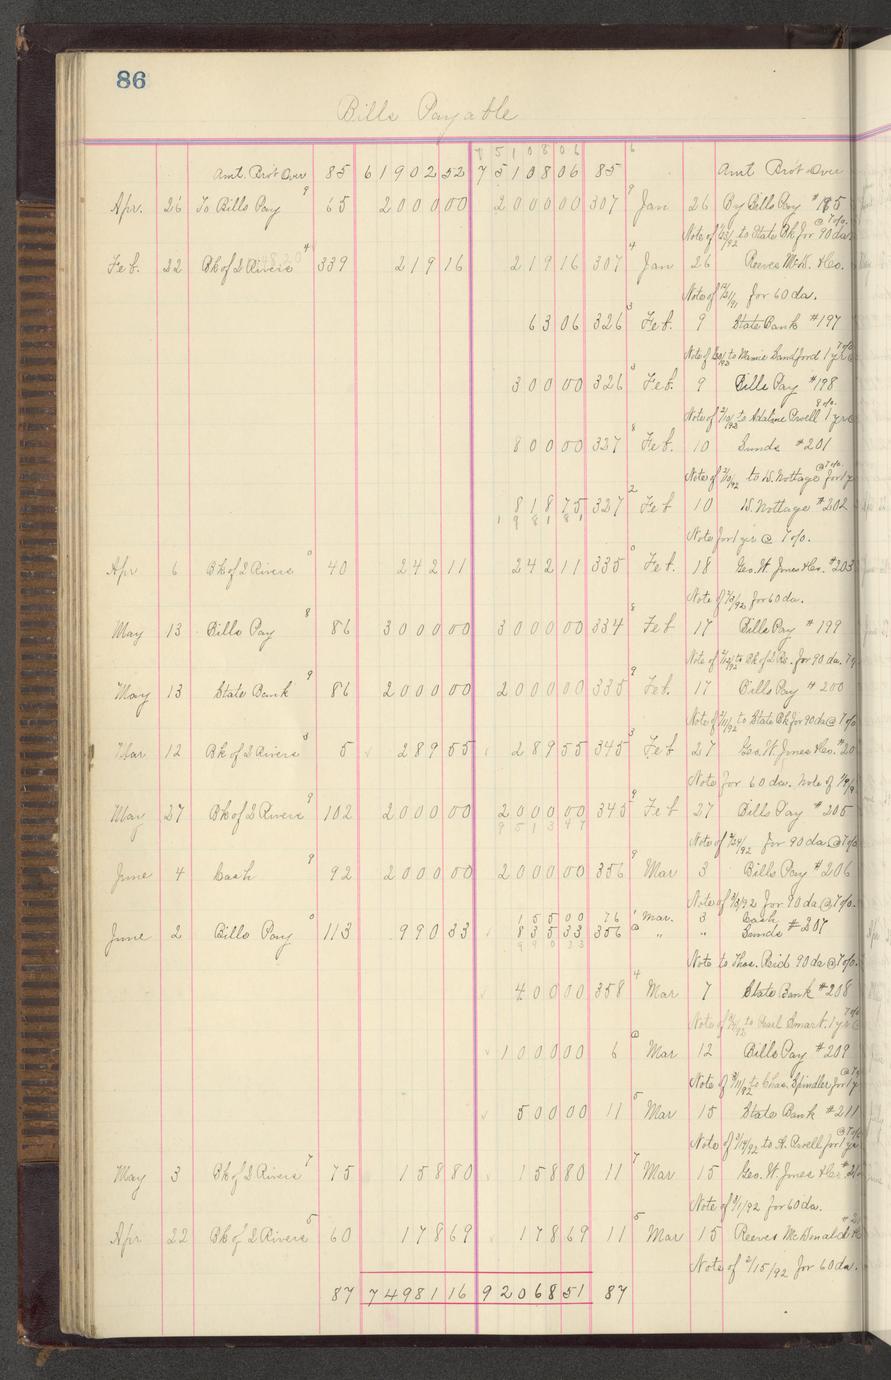 86
Bills Payable
7 5 1 0 8 0 6
Amt. Bro't Over 85 61902 52 75108 06 85 Amt Bro't Over
Apr. 26 To Bills Pay 9 65 2000 00 2000 00 307 9 Jan 26 By Bills Pay #185
Note of 1/23/92 to State Bk for 90 da @ 7 o/o.
Feb. 22 Bk of 2 Rivers 4 339 219 16 219 16 307 4 Jan 26 Reeves McD. & Co.
Note of 12/21/91 for 60 da.
63 06 326 3 Feb. 9 State Bank #197
to Mamie Sandford 1 yr @ 7 o/o
300 00 326 3 Feb. 9 Bills Pay #198
Note of 2/9/92 to Adaline Powell 1 yr @ 8 o/o.
800 00 327 8 Feb. 10 Sunds #201
Note of 2/9/92 to W. Nottage for 1 y @ 7 o/o.
818 75 327 2 Feb 10 W. Nottage #202
1 9 8 1 8 1
Note for 1 yr @ 7 o/o.
Apr 6 Bk of 2 Rivers 0 40 242 11 242 11 335 0 Feb. 18 Geo. W. Jones & Co. #203
Note of 2/3/92 for 60 da.
May 13 Bills Pay 8 86 3000 00 3000 00 334 8 Feb 17 Bills Pay #199
Note of 2/12/92 to Bk of 2 Rs. for 90 da. 7 o
May 13 State Bank 9 86 2000 00 2000 00 335 9 Feb. 17 Bills Pay #200
Note of 2/11/92 to State Bk for 90 da @ 7 o/o
Mar 12 Bk of 2 Rivers 3 5 289 55 289 55 345 3 Feb 27 Geo. W. Jones & Co. #20
Note for 60 da. Note of 1/9/9
May 27 Bk of 2 Rivers 9 102 2000 00 2000 00 345 9 Feb 27 Bills Pay #205
9 5 1 3 4 7
Note of 2/24/92 for 90 da. @ 7 o/o
June 4 Cash 9 92 2000 00 2000 00 356 9 Mar 3 Bills Pay #206
Note of 3/3/92 for 90 da @ 7 o/o.
155 00 76 1 Mar. 3 Cash
June 2 Bills Pay 0 113 990 33 835 33 356 " " Sunds #207
9 9 0 3 3
Note to Thos. Reid 90 da @ 7 o/o.
400 00 358 4 Mar 7 State Bank #208
to Pearl Smart. 1 yr @ 7 o/o
1000 00 6 Mar 12 Bills Pay #209
Note of 3/11/92 to Chas. Spindler for 1 y @ 7 o
500 00 11 5 Mar 15 State Bank #211
Note of 3/14/92 to A. Powell for 1 yr @ 7 o/o
May 3 Bk of 2 Rivers 7 75 158 80 158 80 11 7 Mar 15 Geo. W. Jones & Co. #21
Note of 3/1/92 for 60 da.
Apr 22 Bk of 2 Rivers 5 60 178 69 178 69 11 5 Mar 15 Reeves McDonald &
Note of 2/15/92 for 60 da.
87 74981 16 92068 51 87